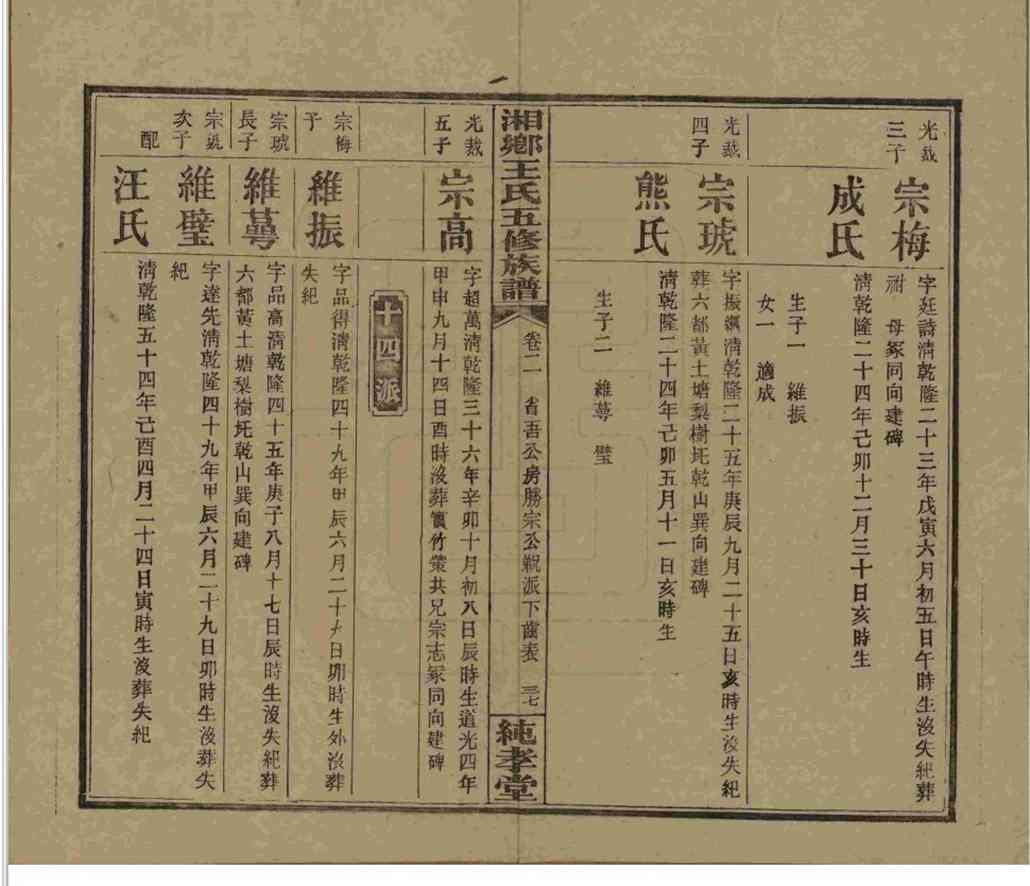 光裁
三子
宗梅
字廷詩淸乾隆二十三年戊寅六月初五日午時生沒失紀葬
祔 母冢同向建碑
成氏
淸乾隆二十四年己卯十二月三十日亥時生
生子一 維振
女一 適成
光裁
四子
宗琥
字振 淸乾隆二十五年庚辰九月二十五日亥時生沒失紀
葬六都黃土塘梨樹坵乾山巽向建碑
熊氏
淸乾隆二十四年己卯五月十一日亥時生
生子二 維蕚 璧
湘鄉王氏五修族譜
卷二 省吾公房勝宗公 派下齒表 三七
純孝堂
光裁
五子
宗高
字超萬淸乾隆三十六年辛卯十月初八日辰時生道光四年
甲申九月十四日酉時沒葬 竹 共兄宗志冢同向建碑
十四派
宗梅
子
維振
字品得淸乾隆四十九年甲辰六月二十六日卯時生外沒葬
失紀
宗琥
長子
維蕚
字品高淸乾隆四十五年庚子八月十七日辰時生沒失紀葬
六都黃土塘梨樹坵乾山巽向建碑
宗琥
次子
維璧
字達先淸乾隆四十九年甲辰六月二十九日卯時生沒葬失
紀
配
汪氏
淸乾隆五十四年己酉四月二十四日寅時生沒葬失紀